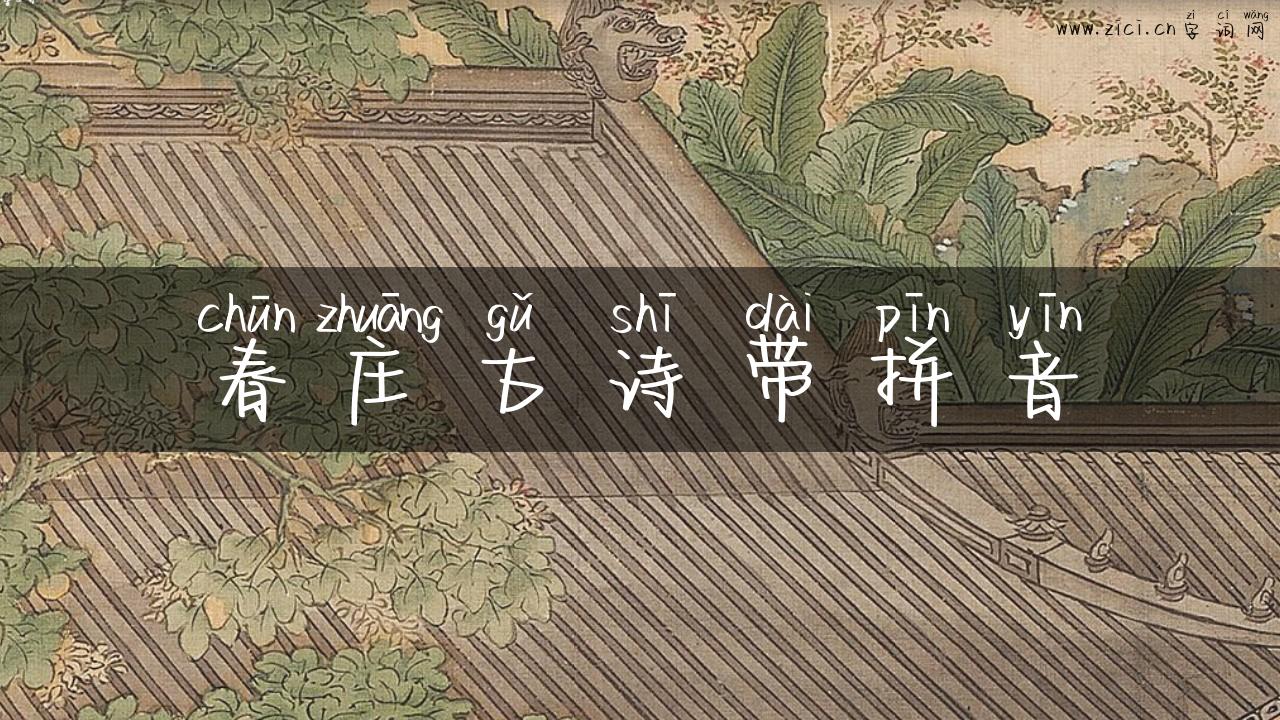 zì cí wǎng
www.zici.cn 字 词 网
chūn zhuāng gǔ shī dài pīn yīn
春 庄 古 诗 带 拼 音